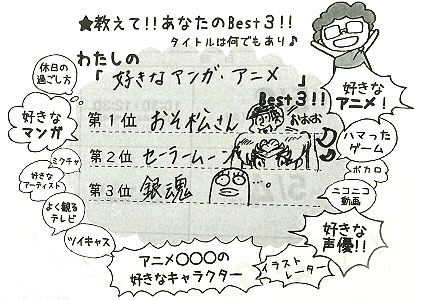 ★教えて!!あなたのBest3!!
タイトルは何でもあり♪
わたしの
「好きなマンガ・アニメ」
Best3!!
第1位 おそ松さん
おおお
第2位 セーラームーン
第3位 銀魂
休日の
過ごし方
好きな
マンガ
ミクチャ
好きな
アーティスト
よく観る
テレビ
ツイキャス
アニメ○○○の
好きなキャラクター
イラスト
レーター
好きな
声優!!
ニコニコ
動画
ボカロ
ハマった
ゲーム
好きな
アニメ!